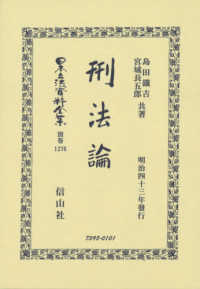 島田鐵吉
宮城長五郎 共著
刑法論
明治四十三年發行
日本立法資料全集
別巻
1276
信山社
7293-0101